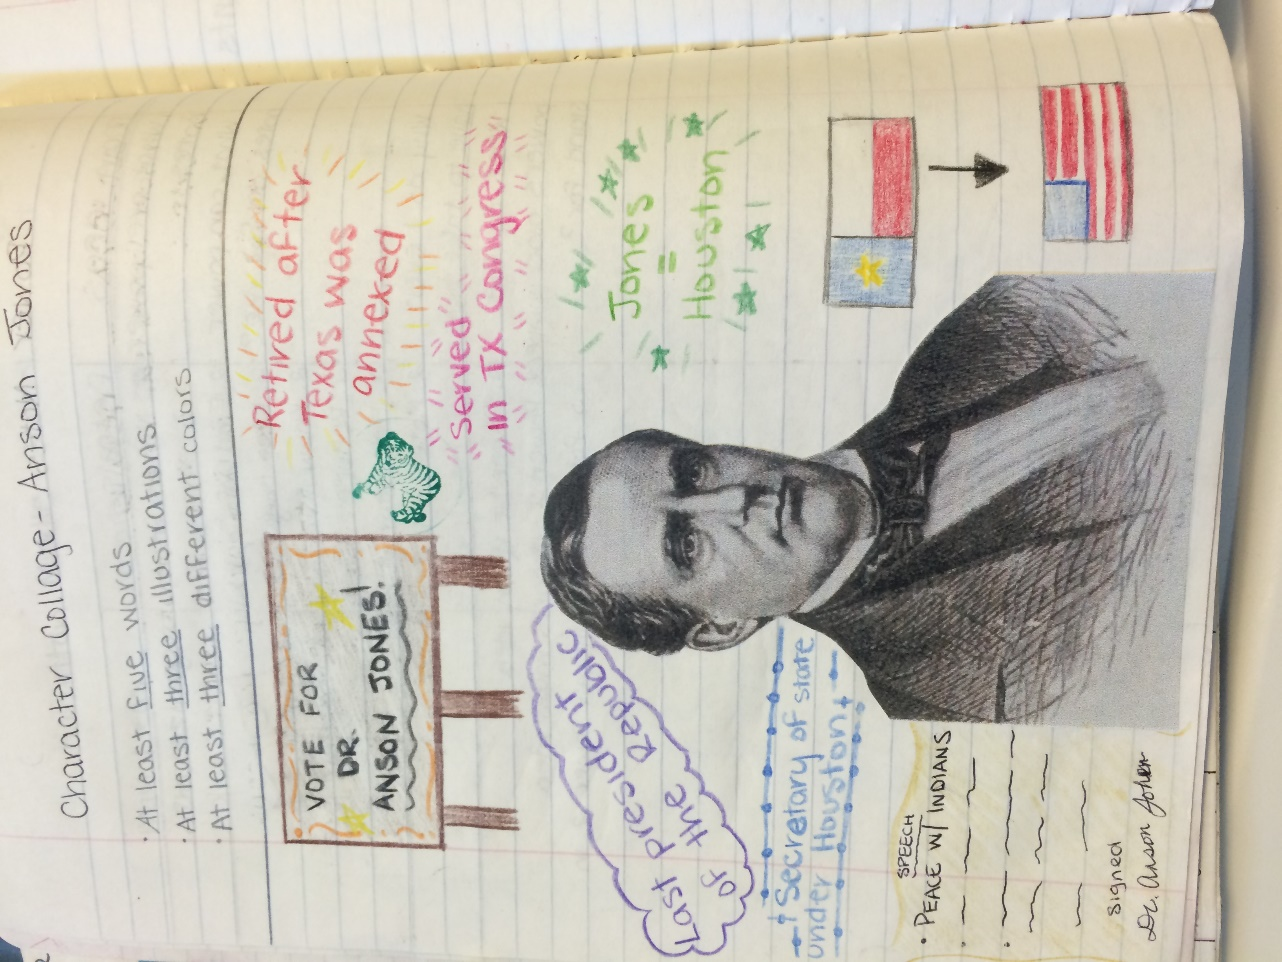 Character Collage - Anson Jones
· At least five words
· At least three illustrations
· At least three different colors
VOTE FOR
DR.
ANSON JONES!
Retired after
Texas was
annexed
served
in TX Congress
Last President
of the Republic
Jones
=
Houston
Secretary of state
under Houston
SPEECH
· PEACE W/ INDIANS
signed
Dr. Anson Jones